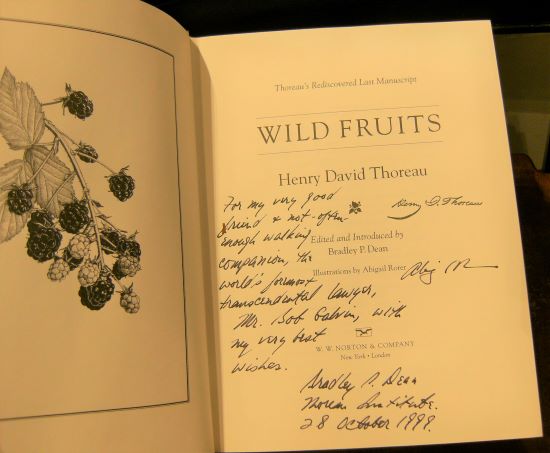 Thoreau's Rediscovered Last Manuscript
WILD FRUITS
Henry David Thoreau
For my very good
friend & not-often-
enough walking
companion, the
world's foremost
transcendental lawyer,
Mr. Bob Galvin, with
my very best
wishes.
Henry D. Thoreau
Edited and Introduced by
Bradley P. Dean
Illustrations by Abigail Rorer
W. W. NORTON & COMPANY
New York • London
Bradley P. Dean
Thoreau Institute.
28 October 1999.